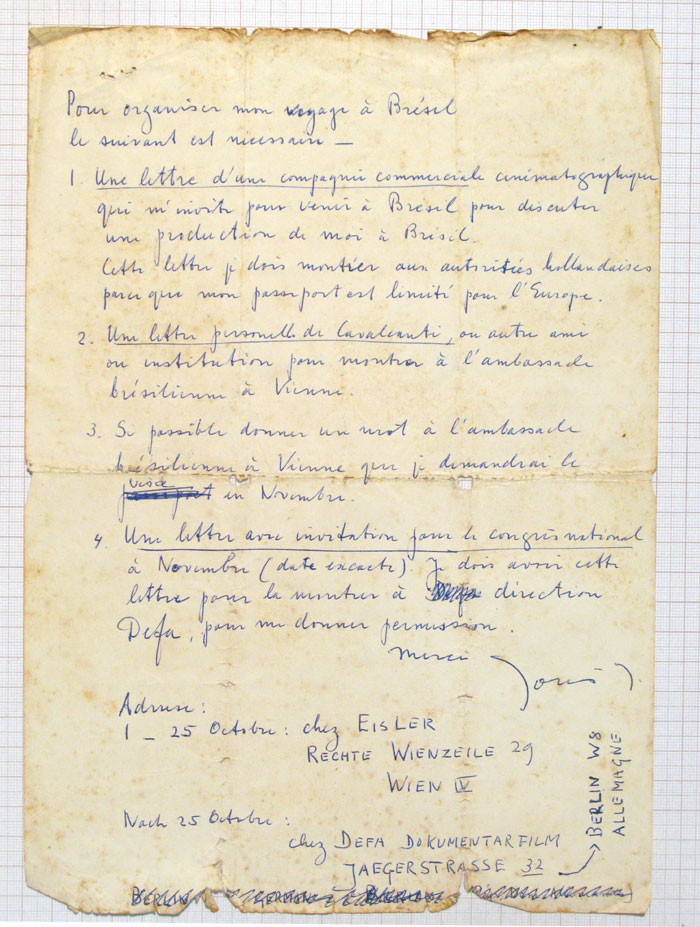 Pour organiser mon voyage à Brésil
le suivant est necessaire —
1. Une lettre d'une compagnie commerciale cinématographique
qui m'invite pour venir à Bresil pour discuter
une production de moi à Brésil.
Cette lettre je dois montrer aux autorités hollandaises
parce que mon passeport est limité pour l'Europe.
2. Une lettre personelle de Cavalcanti, ou autre ami
ou institution pour montrer à l'ambassade
brésilienne à Vienne.
3. Si possible donner un mot à l'ambassade
brésilienne à Vienne que je demandrai le
visée
passport en Novembre.
4. Une lettre avec invitation pour le congrès national
à Novembre (date excacte). Je dois avoir cette
lettre pour la montrer à direction
Defa, pour me donner permission.
Merci
Joris J.
Adresse:
1 — 25 Octobre: chez EISLER
RECHTE WIENZEILE 29
WIEN IV
Nach 25 Octobre:
chez DEFA DOKUMENTARFILM
JAEGERSTRASSE 32
BERLIN W8
ALLEMAGNE
BERLIN